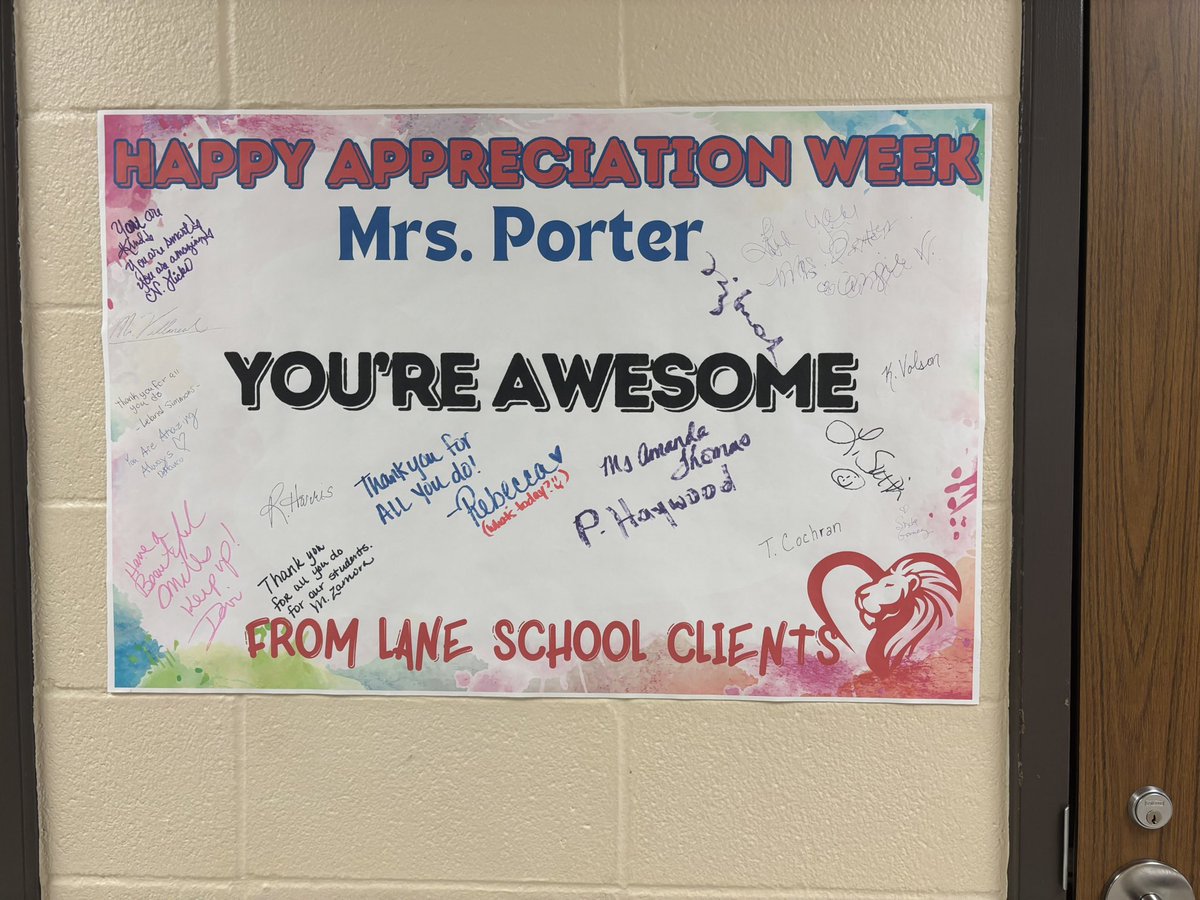 HAPPY APPRECIATION WEEK
Mrs. Porter
You are
Kind
You are smart
You are amazing
N. Hicks
YOU'RE AWESOME
K. Volson
Thank you for all
you do
You Are Amazing
R. Harris
Thank you for
All you do!
-Rebecca ♥
(what today?!)
Ms Amanda
Thomas
P. Haywood
T. Cochran
Have a
Beautiful
Smile
Keep up!
Thank you
for all you do
for our students.
M. Zamora
FROM LANE SCHOOL CLIENTS